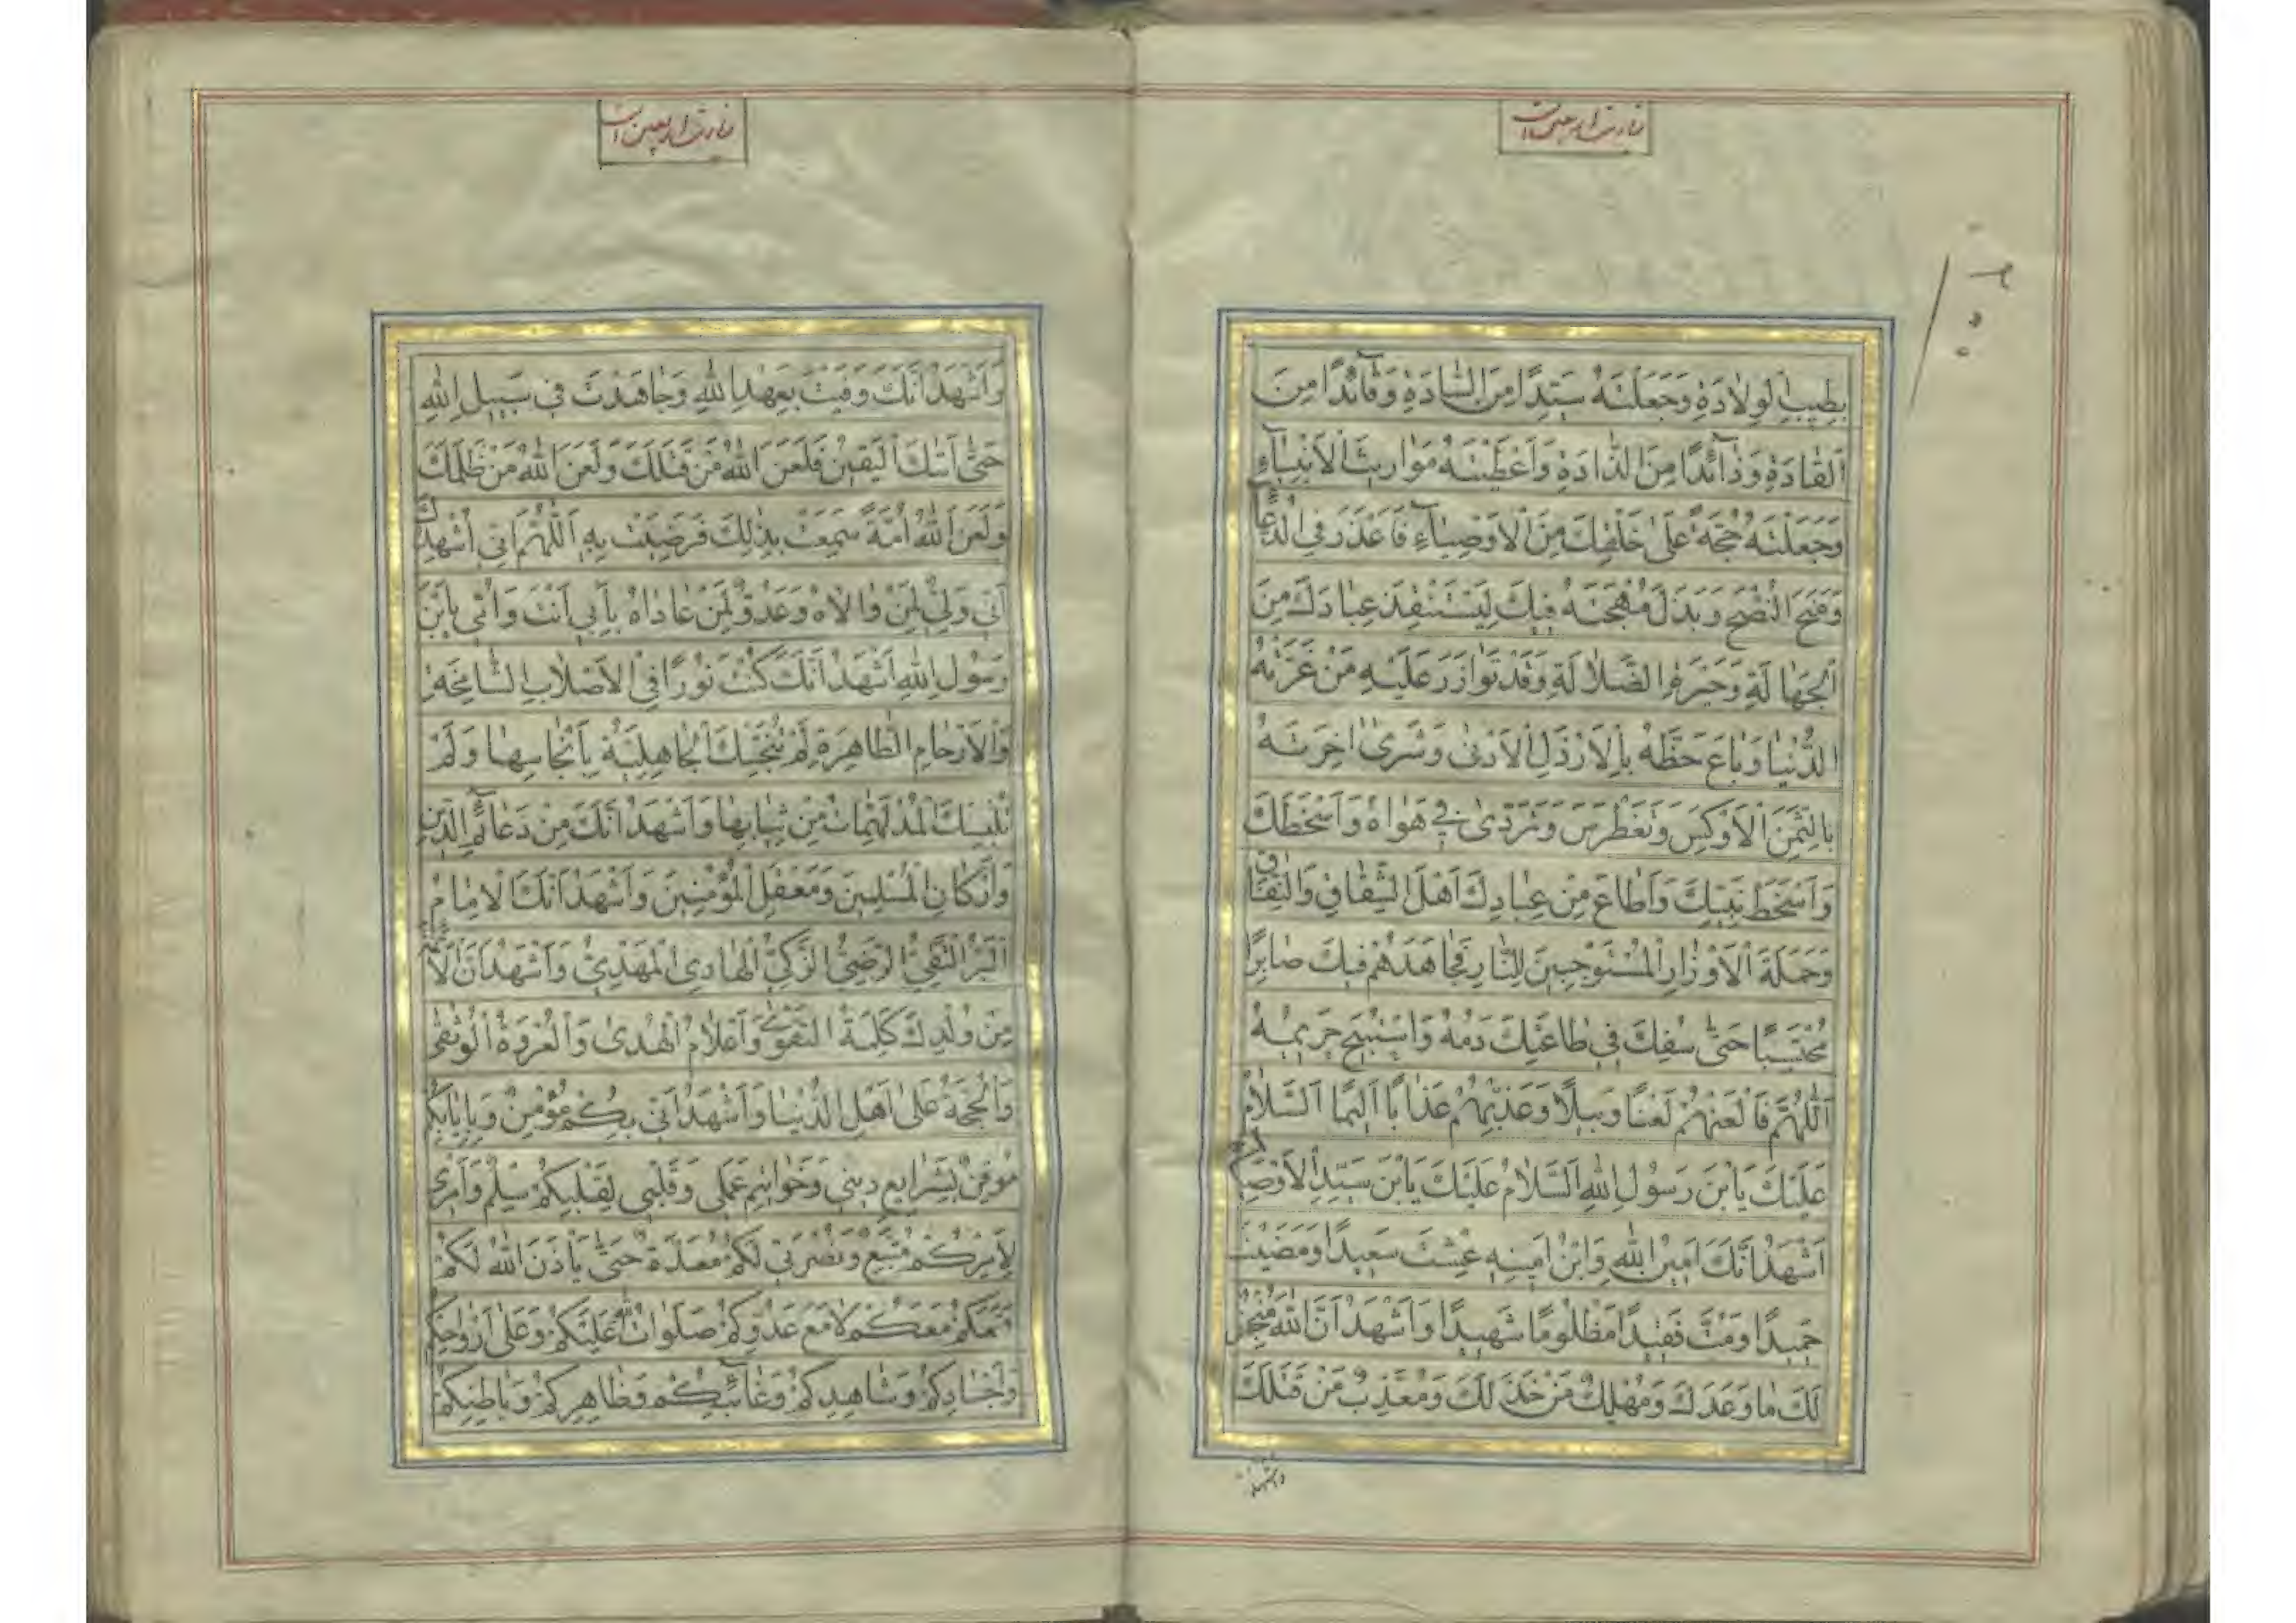 زيارت اربعين است
بِطيبِ الْوِلادَةِ وَجَعَلْتَهُ سَيِّدًا مِنَ السَّادَةِ وَقآئِدًا مِنَ
الْقادَةِ وَذآئِدًا مِنَ الذَّادَةِ وَاَعْطَيْتَهُ مَواريثَ الْاَنْبِيآءِ
وَجَعَلْتَهُ حُجَّةً عَلى خَلْقِكَ مِنَ الْاَوْصِيآءِ فَاَعْذَرَ فِي الدُّعآءِ
وَمَنَحَ النُّصْحَ وَبَذَلَ مُهْجَتَهُ فيكَ لِيَسْتَنْقِذَ عِبادَكَ مِنَ
الْجَهالَةِ وَحَيْرَةِ الضَّلالَةِ وَقَدْ تَوازَرَ عَلَيْهِ مَنْ غَرَّتْهُ
الدُّنْيا وَباعَ حَظَّهُ بِالْاَرْذَلِ الْاَدْنى وَشَرى اخِرَتَهُ
بِالثَّمَنِ الْاَوْكَسِ وَتَغَطْرَسَ وَتَرَدّى في هَواهُ وَاَسْخَطَكَ
وَاَسْخَطَ نَبِيَّكَ وَاَطاعَ مِنْ عِبادِكَ اَهْلَ الشِّقاقِ وَالنِّفاقِ
وَحَمَلَةَ الْاَوْزارِ الْمُسْتَوْجِبينَ لِلنَّارِ فَجاهَدَهُمْ فيكَ صابِرًا
مُحْتَسِبًا حَتّى سُفِكَ في طاعَتِكَ دَمُهُ وَاسْتُبيحَ حَريمُهُ
اَللّهُمَّ فَالْعَنْهُمْ لَعْنًا وَبيلًا وَعَذِّبْهُمْ عَذابًا اَليمًا اَلسَّلامُ
عَلَيْكَ يَابْنَ رَسُولِ اللهِ اَلسَّلامُ عَلَيْكَ يَابْنَ سَيِّدِ الْاَوْصِيآءِ
اَشْهَدُ اَنَّكَ اَمينُ اللهِ وَابْنُ اَمينِهِ عِشْتَ سَعيدًا وَمَضَيْتَ
حَميدًا وَمُتَّ فَقيدًا مَظْلُومًا شَهيدًا وَاَشْهَدُ اَنَّ اللهَ مُنْجِزٌ
لَكَ ما وَعَدَكَ وَمُهْلِكٌ مَنْ خَذَلَكَ وَمُعَذِّبٌ مَنْ قَتَلَكَ
واشهد
زيارت اربعين است
وَاَشْهَدُ اَنَّكَ وَفَيْتَ بِعَهْدِ اللهِ وَجاهَدْتَ في سَبيلِ اللهِ
حَتّى اَتيكَ الْيَقينُ فَلَعَنَ اللهُ مَنْ قَتَلَكَ وَلَعَنَ اللهُ مَنْ ظَلَمَكَ
وَلَعَنَ اللهُ اُمَّةً سَمِعَتْ بِذلِكَ فَرَضِيَتْ بِهِ اَللّهُمَّ اِنّي اُشْهِدُكَ
اَنّي وَلِيٌّ لِمَنْ والاهُ وَعَدُوٌّ لِمَنْ عاداهُ بِاَبي اَنْتَ وَاُمّي يَابْنَ
رَسُولِ اللهِ اَشْهَدُ اَنَّكَ كُنْتَ نُورًا فِي الْاَصْلابِ الشَّامِخَةِ
وَالْاَرْحامِ الطَّاهِرَةِ لَمْ تُنَجِّسْكَ الْجاهِلِيَّةُ بِاَنْجاسِها وَلَمْ
تُلْبِسْكَ الْمُدْلَهِمَّاتُ مِنْ ثِيابِها وَاَشْهَدُ اَنَّكَ مِنْ دَعآئِمِ الدّينِ
وَاَرْكانِ الْمُسْلِمينَ وَمَعْقِلِ الْمُؤْمِنينَ وَاَشْهَدُ اَنَّكَ الْاِمامُ
الْبَرُّ التَّقِيُّ الرَّضِيُّ الزَّكِيُّ الْهادِي الْمَهْدِيُّ وَاَشْهَدُ اَنَّ الْاَئِمَّةَ
مِنْ وُلْدِكَ كَلِمَةُ التَّقْوى وَاَعْلامُ الْهُدى وَالْعُرْوَةُ الْوُثْقى
وَالْحُجَّةُ عَلى اَهْلِ الدُّنْيا وَاَشْهَدُ اَنّي بِكُمْ مُؤْمِنٌ وَبِاِيابِكُمْ
مُوقِنٌ بِشَرايِعِ ديني وَخَواتيمِ عَمَلي وَقَلْبي لِقَلْبِكُمْ سِلْمٌ وَاَمْري
لِاَمْرِكُمْ مُتَّبِعٌ وَنُصْرَتي لَكُمْ مُعَدَّةٌ حَتّى يَاْذَنَ اللهُ لَكُمْ
فَمَعَكُمْ مَعَكُمْ لا مَعَ عَدُوِّكُمْ صَلَواتُ اللهِ عَلَيْكُمْ وَعَلى اَرْواحِكُمْ
وَاَجْسادِكُمْ وَشاهِدِكُمْ وَغآئِبِكُمْ وَظاهِرِكُمْ وَباطِنِكُمْ